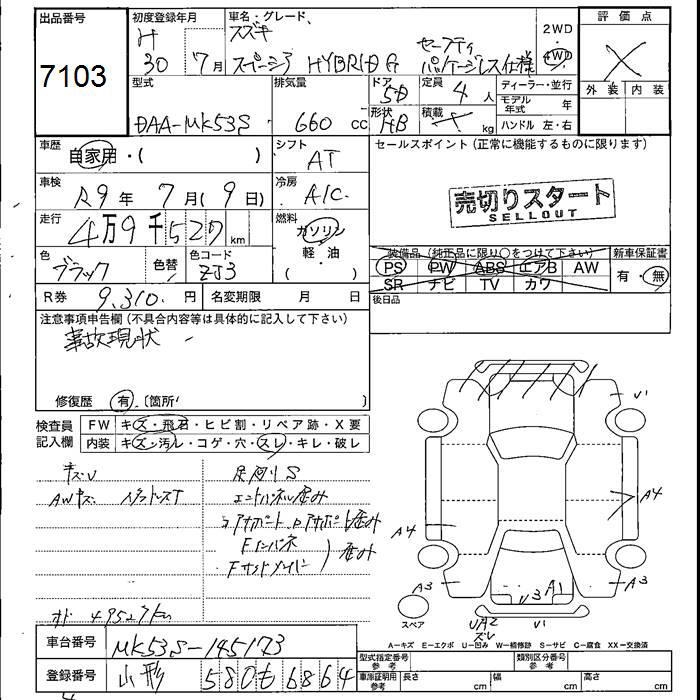 出品番号
7103
初度登録年月
H
30 7月
車名・グレード
スズキ
スペーシア HYBRID G セーフティ
パッケージレス仕様
2WD
4WD
評価点
X
外装 内装
型式
DAA-MK53S
排気量
660 cc
ドア
5D
形状
HB
定員
4 人
積載
kg
ディーラー・並行
モデル年式 年
ハンドル 左・右
車歴
自家用・( )
シフト
AT
セールスポイント (正常に機能するものに限ります)
車検
R9年 7月(9日)
冷房
A/C
売切りスタート
SELLOUT
走行
4万9千527km
燃料
ガソリン
軽・油
( )
色
ブラック
色替
色コード
ZJ3
装備品 (純正品に限り○をつけて下さい)
PS PW ABS エアB AW
SR ナビ TV カワ
新車保証書
有・無
後日品
R券 9,310.円
名変期限 月 日
注意事項申告欄 (不具合内容等は具体的に記入して下さい)
事故現状
修復歴 有.〔箇所 〕
検査員記入欄
FW キズ・飛石・ヒビ割・リペア跡・X要
内装 キズ・汚レ・コゲ・穴・スレ・キレ・破レ
キズU
AWキズ
足回りS
エンドパネル歪み
歪み
Fインパネ
歪み
Fサイドメンバー
オド 49527km
V1
A4
A4
A3
A3
V3 A1
UA2
ズレ
V1
スペア
A-キズ E-エクボ U-凹み W-補修跡 S-サビ C-腐食 XX-交換済
車台番号 MK53S-145173
登録番号 山形 580 も 6864
型式指定番号
参考
類別区分番号
参考
車庫証明用
参考
長さ cm
幅 cm
高さ cm